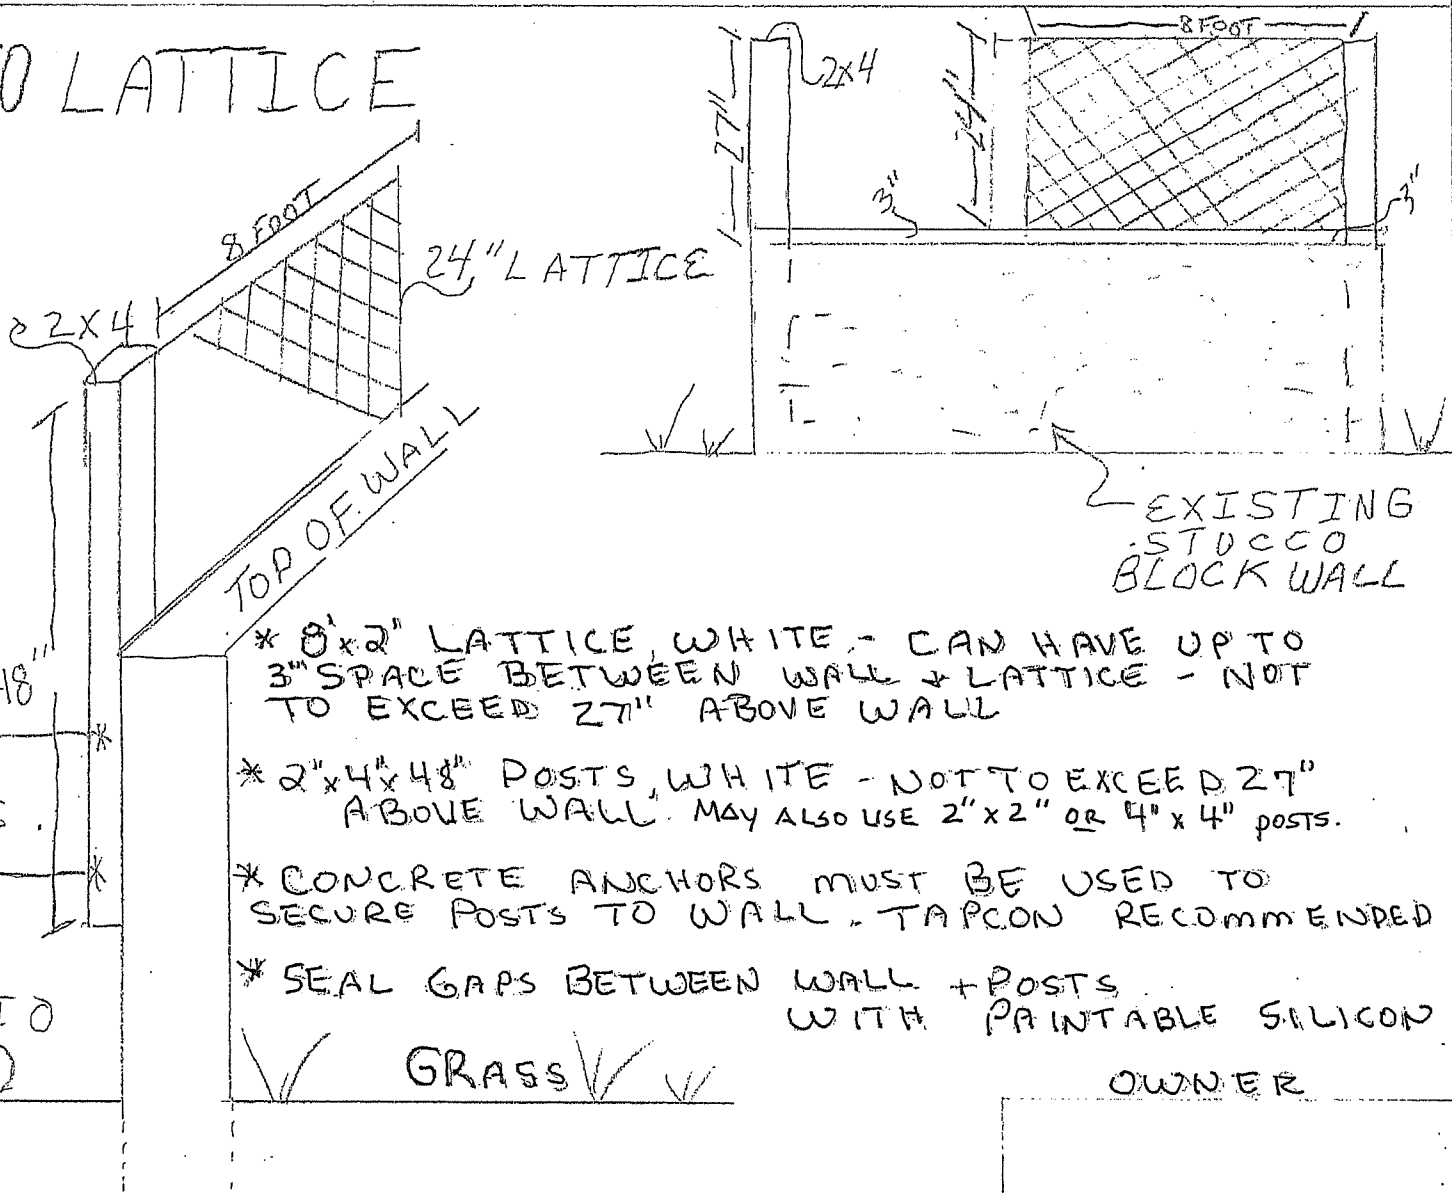 O LATTICE
8 FOOT
24" LATTICE
2X4
TOP OF WALL
48"
27"
2x4
24"
8 FOOT
3"
3"
EXISTING
STUCCO
BLOCK WALL
* 8'x2" LATTICE, WHITE - CAN HAVE UP TO
3" SPACE BETWEEN WALL + LATTICE - NOT
TO EXCEED 27" ABOVE WALL
* 2"x4"x48" POSTS, WHITE - NOT TO EXCEED 27"
ABOVE WALL. MAY ALSO USE 2"x2" OR 4"x4" POSTS.
* CONCRETE ANCHORS MUST BE USED TO
SECURE POSTS TO WALL. TAPCON RECOMMENDED
* SEAL GAPS BETWEEN WALL + POSTS
WITH PAINTABLE SILICON
S.
TO
GRASS
OWNER